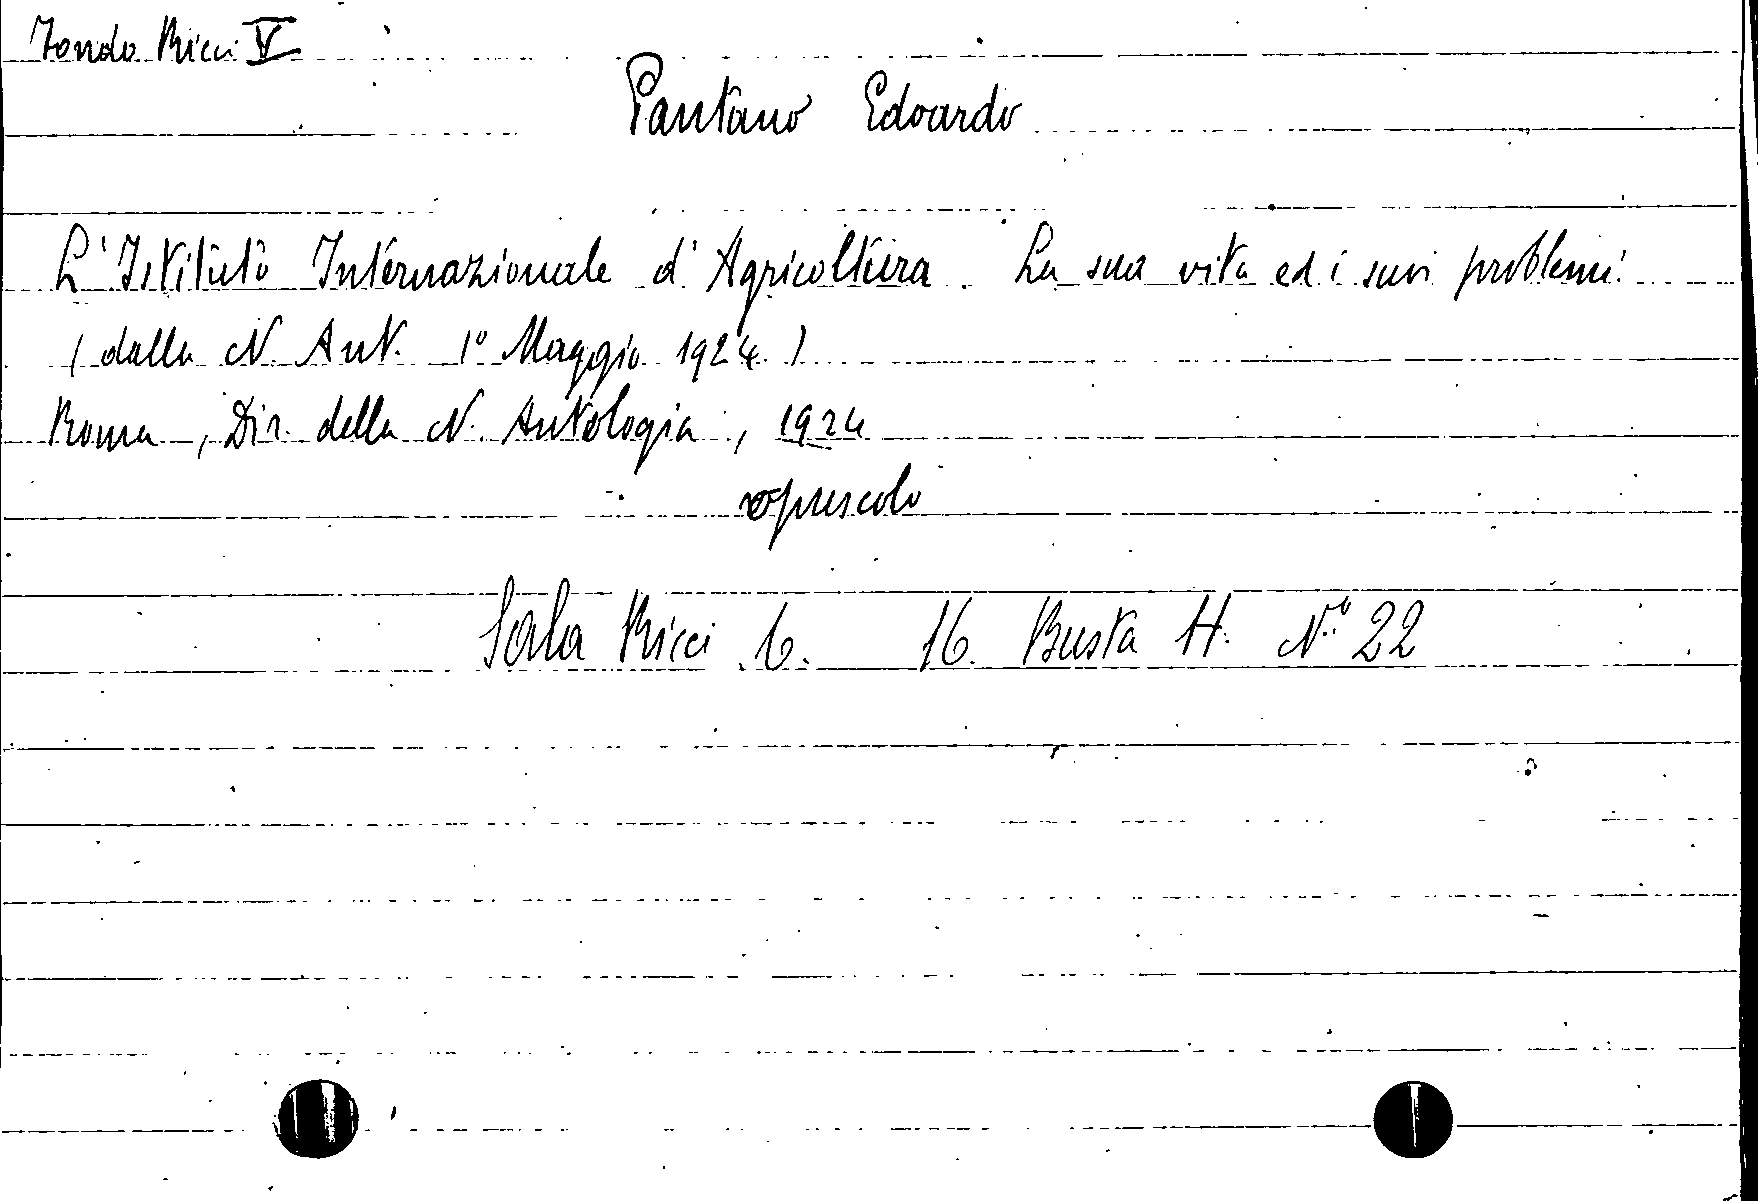 Fondo Ricci V
Pantano Edoardo
L'Istituto Internazionale d'Agricoltura. La sua vita ed i suoi problemi
(dalla N. Ant. 1° Maggio 1924)
Roma, Dir. della N. Antologia, 1924
opuscolo
Sala Ricci 6. 16. Busta H. N.° 22